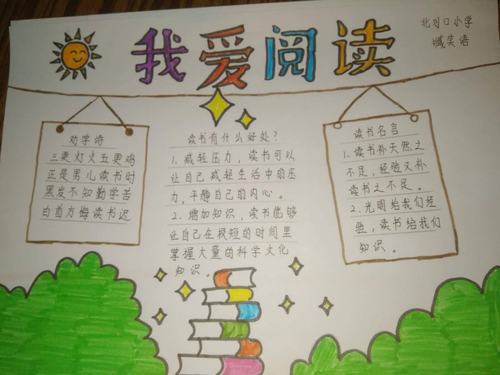 我爱阅读
北对口小学
臧笑语
劝学诗
三更灯火五更鸡
正是男儿读书时
黑发不知勤学苦
白首方悔读书迟
读书有什么好处?
1. 减轻压力，读书可以
让自己减轻生活中的压
力，平静自己的内心。
2. 增加知识，读书能够
让自己在极短的时间里
掌握大量的科学文化
知识。
读书名言
1. 读书补天然之
不足，经验又补
读书之不足。
2. 光明给我们经
验，读书给我们
知识。